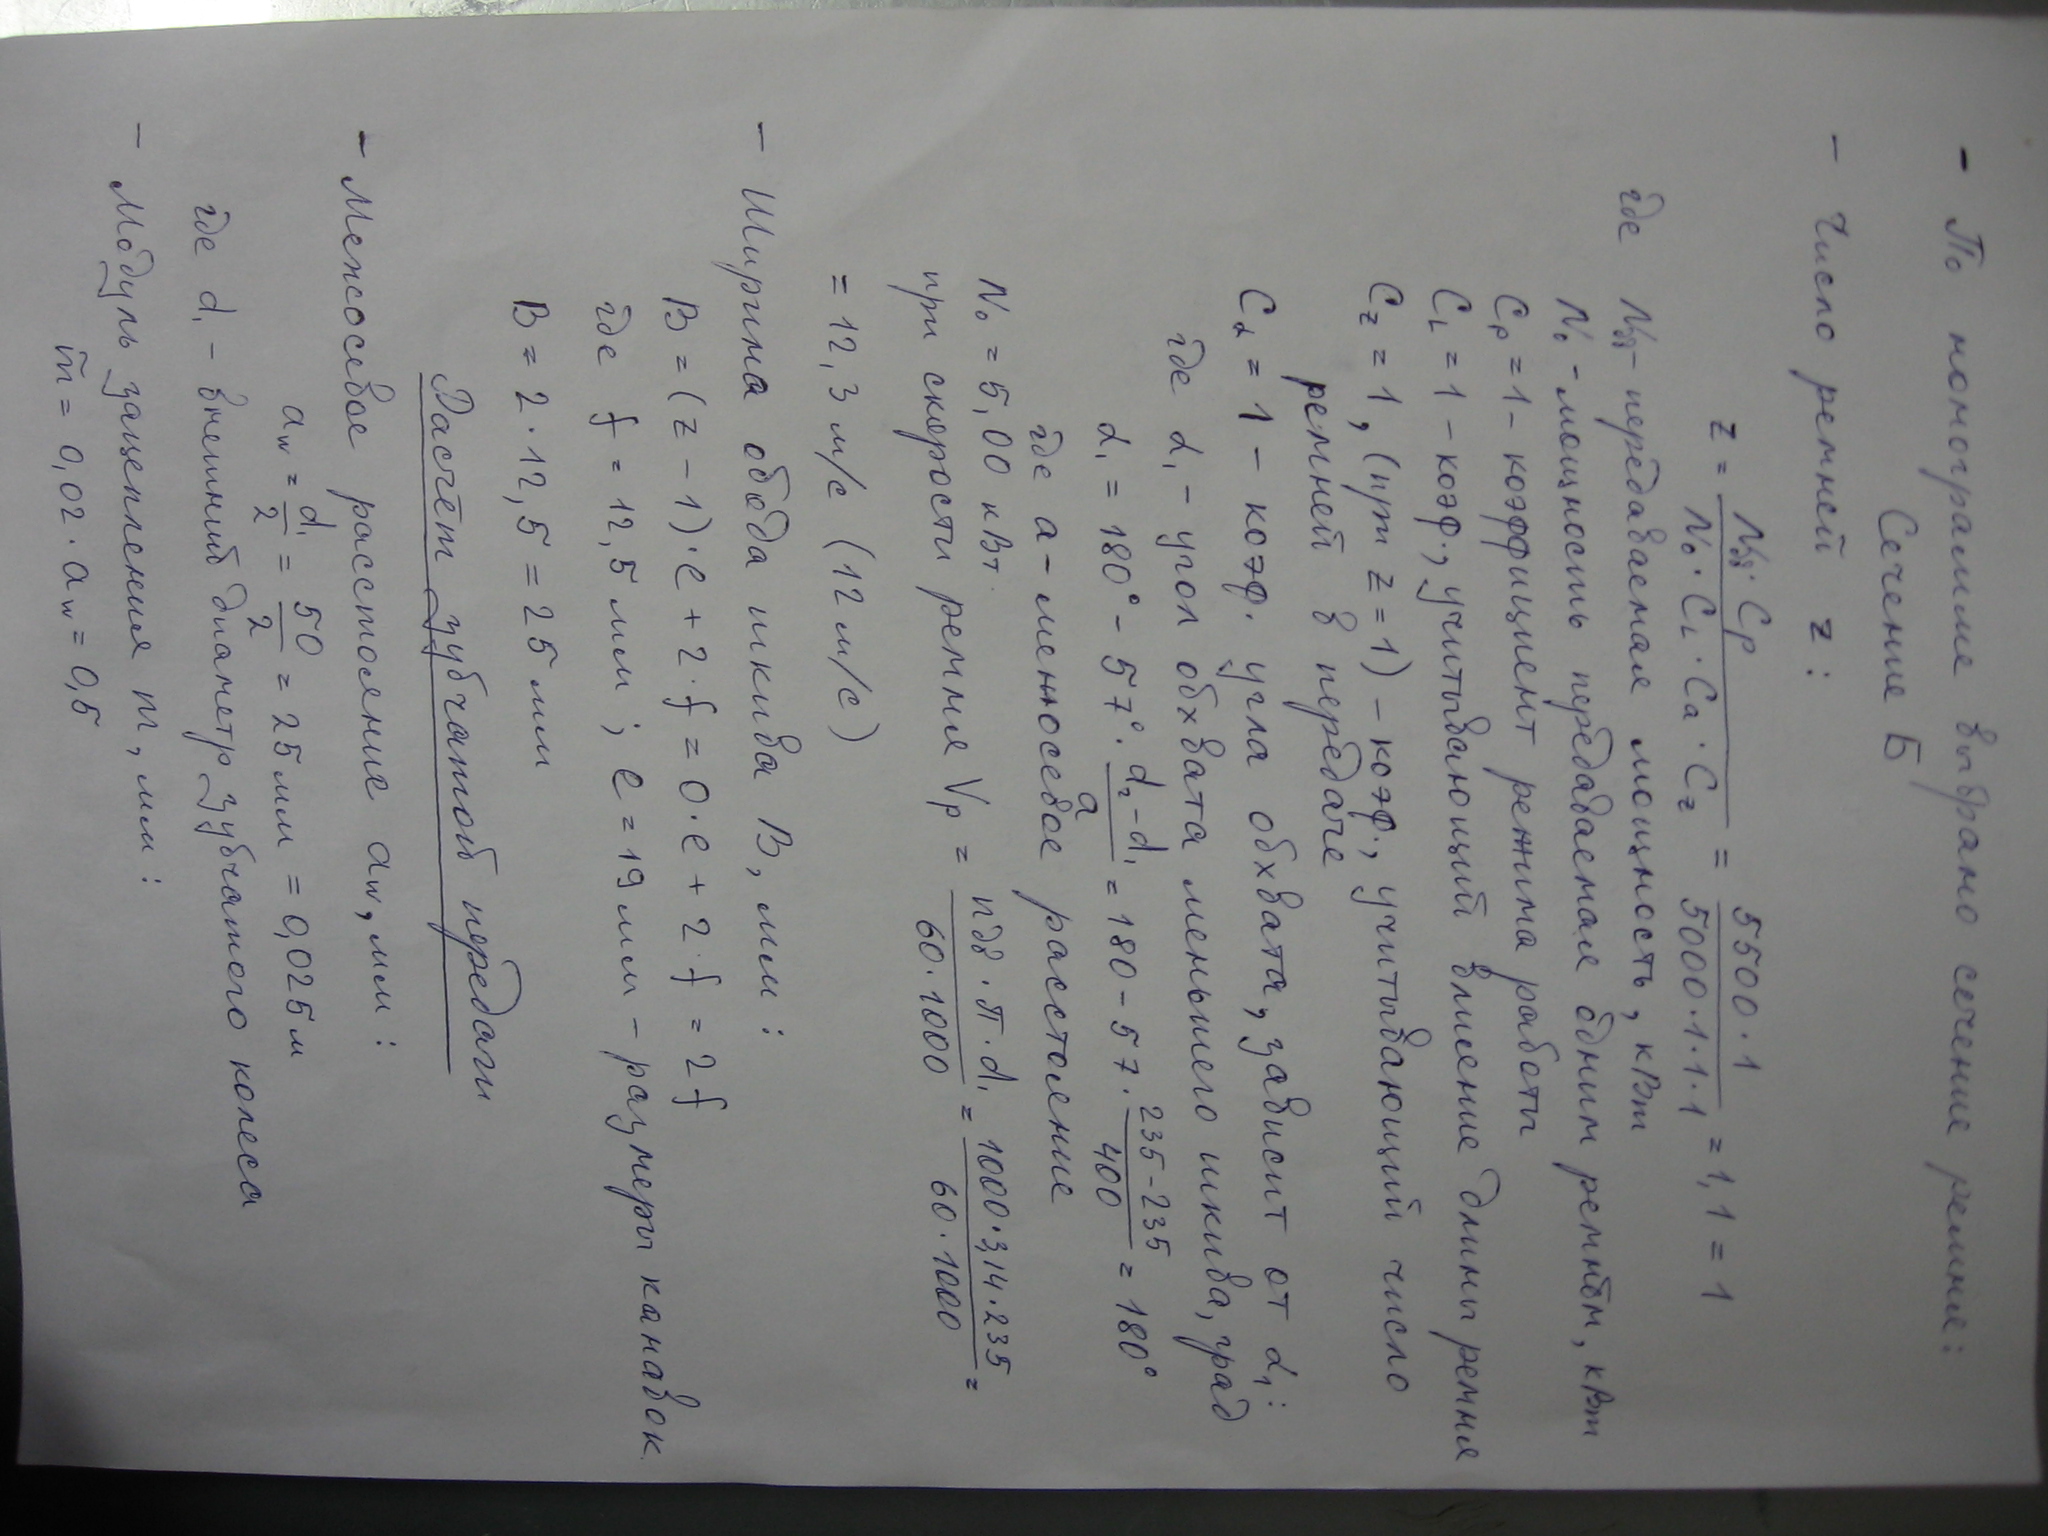 - По номограмме выбрано сечение ремня:
Сечение Б
- Число ремней z:
z = Nдв · Cр / N₀ · C_L · Cα · C_z = 5500 · 1 / 5000 · 1 · 1 · 1 = 1,1 = 1
где Nдв - передаваемая мощность, кВт
N₀ - мощность передаваемая одним ремнём, кВт
Cр = 1 - коэффициент режима работы
C_L = 1 - коэф., учитывающий влияние длины ремня
C_z = 1, (при z = 1) - коэф., учитывающий число
ремней в передаче
C_α = 1 - коэф. угла обхвата, зависит от α₁:
где α₁ - угол обхвата меньшего шкива, град
α₁ = 180° - 57° · d₂ - d₁ / a = 180 - 57 · 235 - 235 / 400 = 180°
где a - межосевое расстояние
N₀ = 5,00 кВт.
при скорости ремня Vр = nдв · π · d₁ / 60 · 1000 = 1000 · 3,14 · 235 / 60 · 1000 =
= 12,3 м/с (12 м/с)
- Ширина обода шкива B, мм:
B = (z - 1) · e + 2 · f = 0 · e + 2 · f = 2f
где f = 12,5 мм; e = 19 мм - размеры канавок
B = 2 · 12,5 = 25 мм
Расчёт зубчатой передачи
- Межосевое расстояние a_w, мм:
a_w = d₁ / 2 = 50 / 2 = 25 мм = 0,025 м
где d₁ - внешний диаметр зубчатого колеса
- Модуль зацепления m, мм:
m = 0,02 · a_w = 0,5